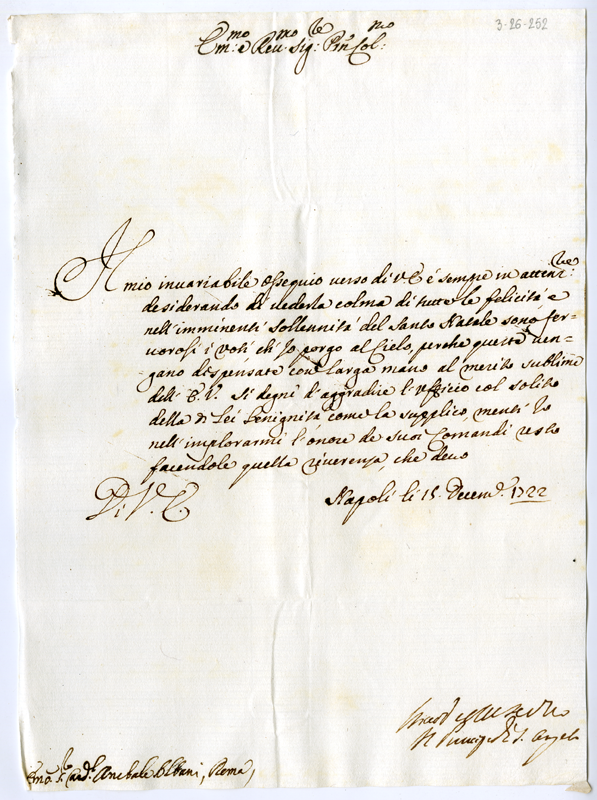 3-26-252
Em:mo e Reu:mo Sig:re Pñe Col:mo
Il mio inuariabile ossequio uerso di V.E. é sempre in atten:ne
desiderando di uederla colma di tutte le felicitá e
nell'imminenti sollennitá del Santo Natale sono fer-
uorosi i voti ch'Io porgo al Cielo, perche queste uen-
gano dispensate con larga mano al merito sublime
dell' E.V. Si degni d'aggradire l'ufficio col solito
della di Lei benignitá come la supplico, mentr'Io
nell'implorarmi l'onore de suoi Comandi resto
facendole quella riuerenza, che deuo
Di V. E. Napoli li 15. Decem.e 1722
Il Principe di S. Angelo
Emo S.re Card.l Anibale Albani, Roma,